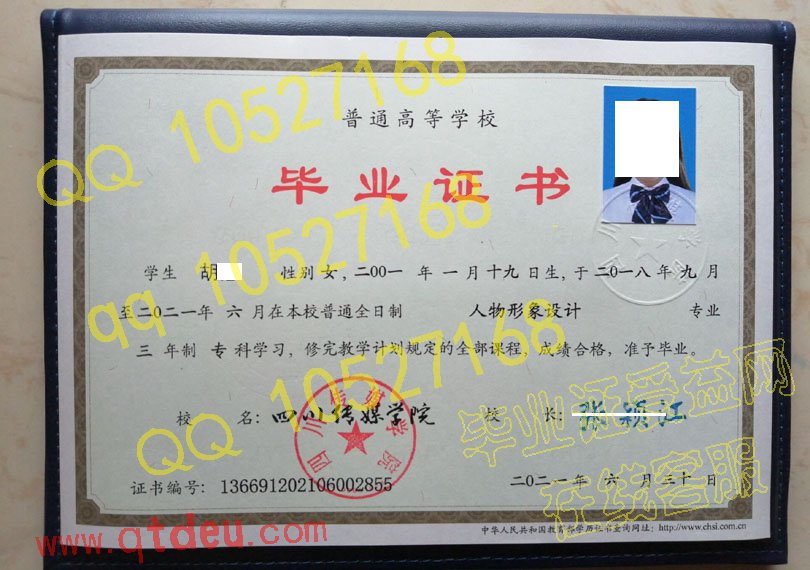 普通高等学校
毕业证书
学生 胡 性别 女, 二〇〇一 年 一 月 十九 日生, 于 二〇一八 年 九 月
至 二〇二一 年 六 月在本校普通全日制 人物形象设计 专业
三 年制 专 科学习, 修完教学计划规定的全部课程, 成绩合格, 准予毕业。
校 名: 四川传媒学院 校 长: 张颖江
四川传媒学院
证书编号: 136691202106002855 二〇二一 年 六 月 三十 日
中华人民共和国教育部学历证书查询网址: http://www.chsi.com.cn
QQ 10527168
qq 10527168
QQ 10527168
毕业证受益网
在线客服
www.qtdeu.com